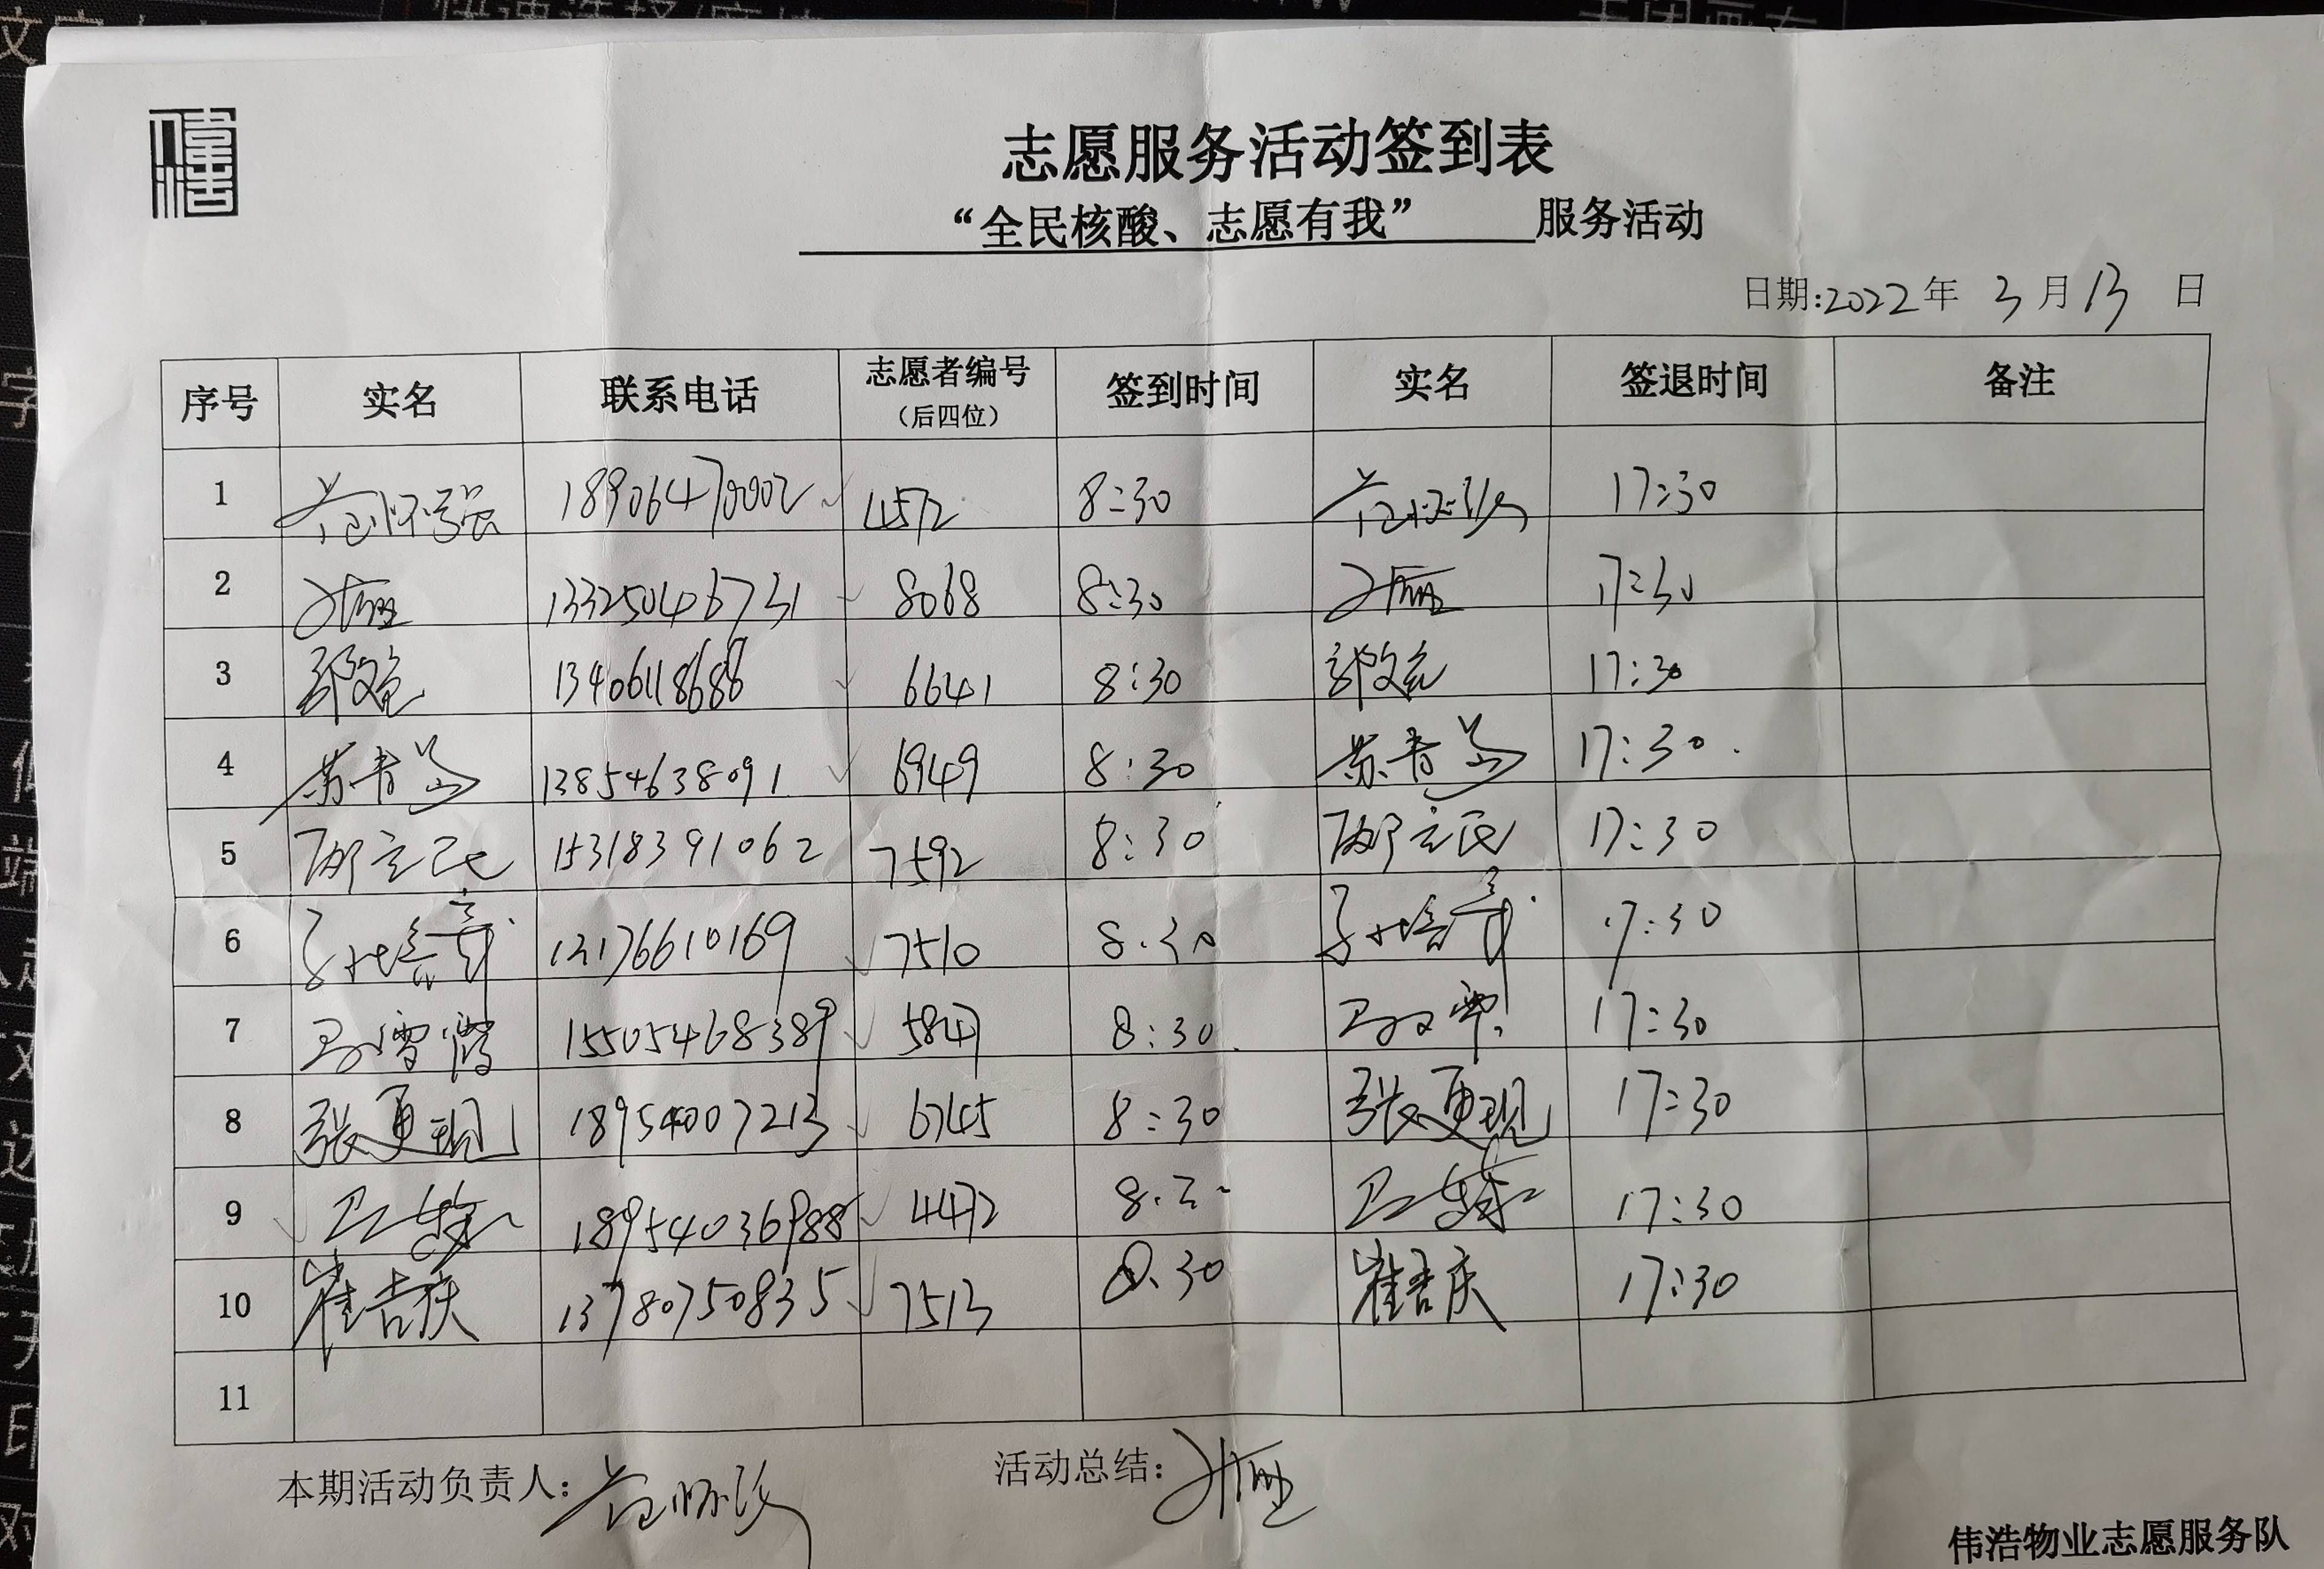 志愿服务活动签到表
“全民核酸、志愿有我” 服务活动
日期:2022年 3月13 日
序号 实名 联系电话 志愿者编号（后四位） 签到时间 实名 签退时间 备注
1 18906470002 4572 8:30 17:30
2 13325046731 8068 8:30 17:30
3 13406118688 6641 8:30 17:30
4 苏青 13854638091 6949 8:30 苏青 17:30
5 邴立民 15318391062 7592 8:30 邴立民 17:30
6 13176610169 7510 8:30 17:30
7 15505468389 5847 8:30 17:30
8 张更现 18954007213 6745 8:30 张更现 17:30
9 18954036988 4472 8:30 17:30
10 崔吉庆 13780750835 7513 8:30 崔吉庆 17:30
11
本期活动负责人: 活动总结:
伟浩物业志愿服务队